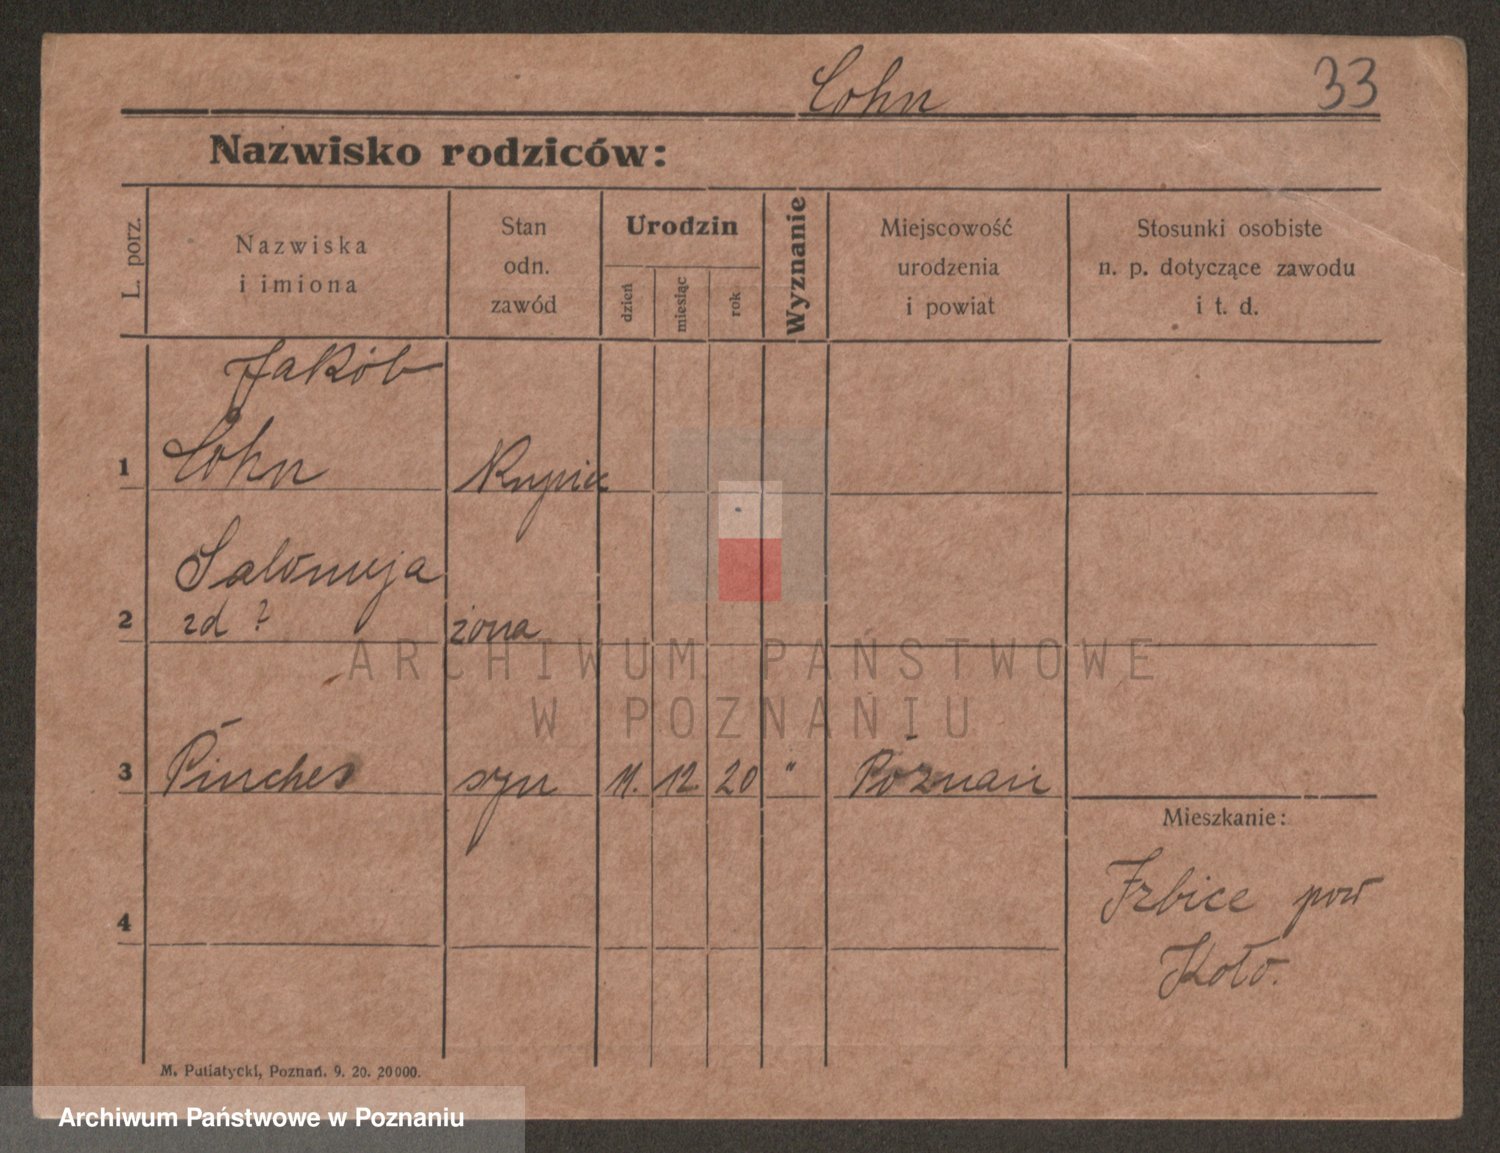 Cohn 33
Nazwisko rodziców:
L. porz.
Nazwiska
i imiona
Stan
odn.
zawód
Urodzin
dzień
miesiąc
rok
Wyznanie
Miejscowość
urodzenia
i powiat
Stosunki osobiste
n. p. dotyczące zawodu
i t. d.
Jakób
1 Cohn Kupiec
Salomeja
2 zd ? żona
ARCHIWUM PAŃSTWOWE
W POZNANIU
3 Pinches syn 11. 12. 20 " Poznań
Mieszkanie:
4
Izbice pow
Koło.
M. Putiatycki, Poznań. 9. 20. 20000.
Archiwum Państwowe w Poznaniu